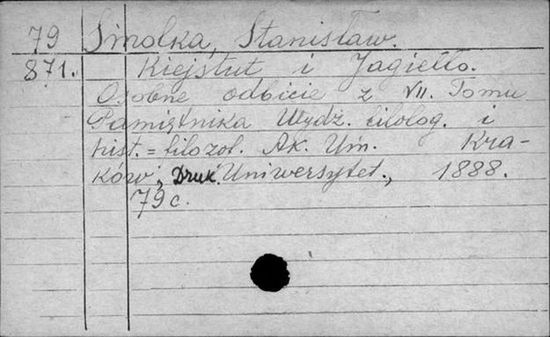 79 Smolka, Stanisław.
871. Kiejstut i Jagiełło.
Osobne odbicie z VII. Tomu
Pamiętnika Wydz. filolog. i
hist.=filozof. Ak. Um. Kra-
ków, Druk. Uniwersytet., 1888.
79 c.